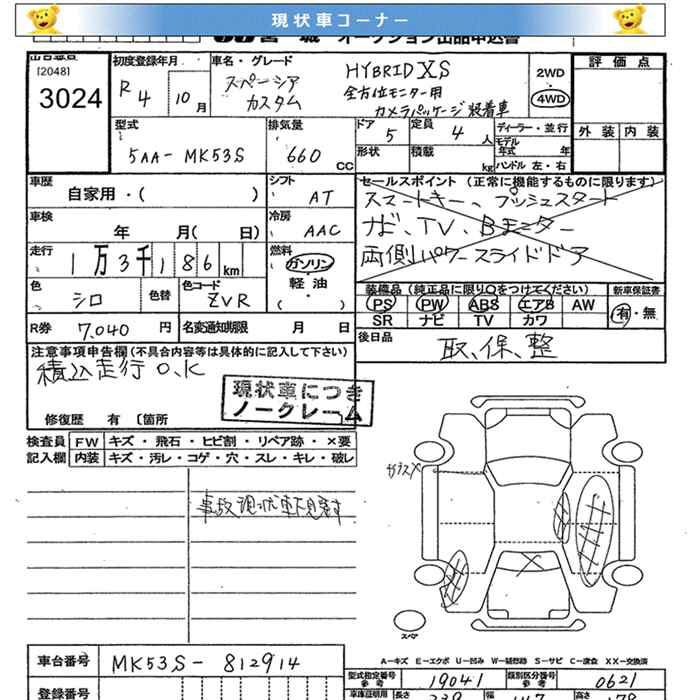 現状車コーナー
宮城 オークション出品申込書
[2048]
3024
初度登録年月
R4 10月
車名・グレード
スペーシア
カスタム
HYBRID XS
全方位モニター用
カメラパッケージ装着車
2WD
4WD
評価点
外装 内装
型式
5AA-MK53S
排気量
660 CC
ドア 5
定員 4人
形状
積載 kg
ディーラー・並行
モデル年式 年
ハンドル 左・右
車歴
自家用・( )
シフト AT
車検
年 月( 日)
冷房 AAC
走行
1万3千186km
燃料
ガソリン
軽油
( ・ )
色 シロ
色替
色コード ZVR
R券 7,040円
名変通知期限 月 日
セールスポイント (正常に機能するものに限ります)
スマートキー、プッシュスタート
ナビ、TV、Bモニター
両側パワースライドドア
装備品 (純正品に限り○をつけてください)
PS PW ABS エアB AW
SR ナビ TV カワ
新車保証書
有・無
後日品
取、保、整
注意事項申告欄(不具合内容等は具体的に記入して下さい)
積込走行O.K
現状車につき
ノークレーム
修復歴 有 〔箇所
検査員記入欄
FW キズ・飛石・ヒビ割・リペア跡・×要
内装 キズ・汚レ・コゲ・穴・スレ・キレ・破レ
事故現状車下見済
ガラスX
スペア
A-キズ E-エクボ U-凹み W-補修跡 S-サビ C-腐食 XX-交換済
車台番号 MK53S-812914
登録番号
型式指定番号 参考 19041
類別区分番号 参考 0621
車庫証明用 参考
長さ 339
幅 147
高さ 178